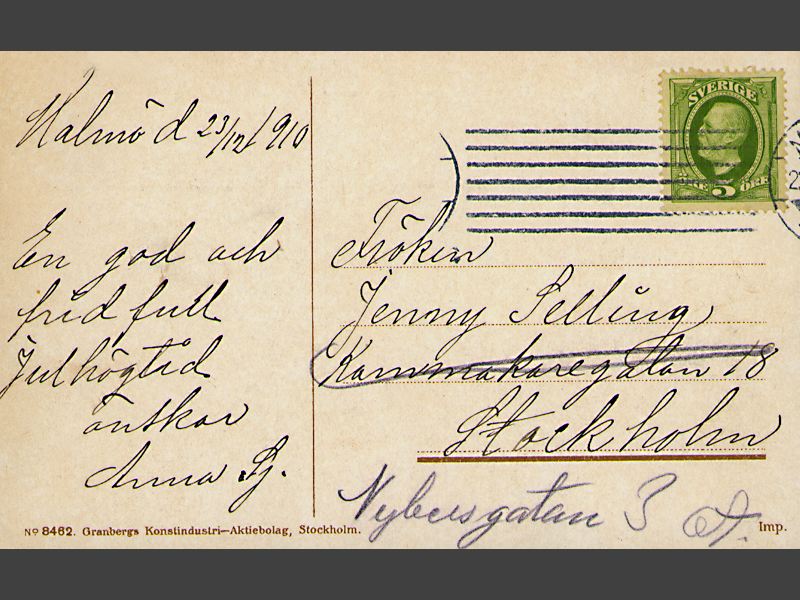 Malmö d 23/12/910
En god och
fridfull
Julhögtid
önskar
Anna Lj.
SVERIGE
5 ÖRE
Fröken
Jenny Selling
Kammakaregatan 18
Stockholm
3
No 8462. Granbergs Konstindustri–Aktiebolag, Stockholm.
Imp.